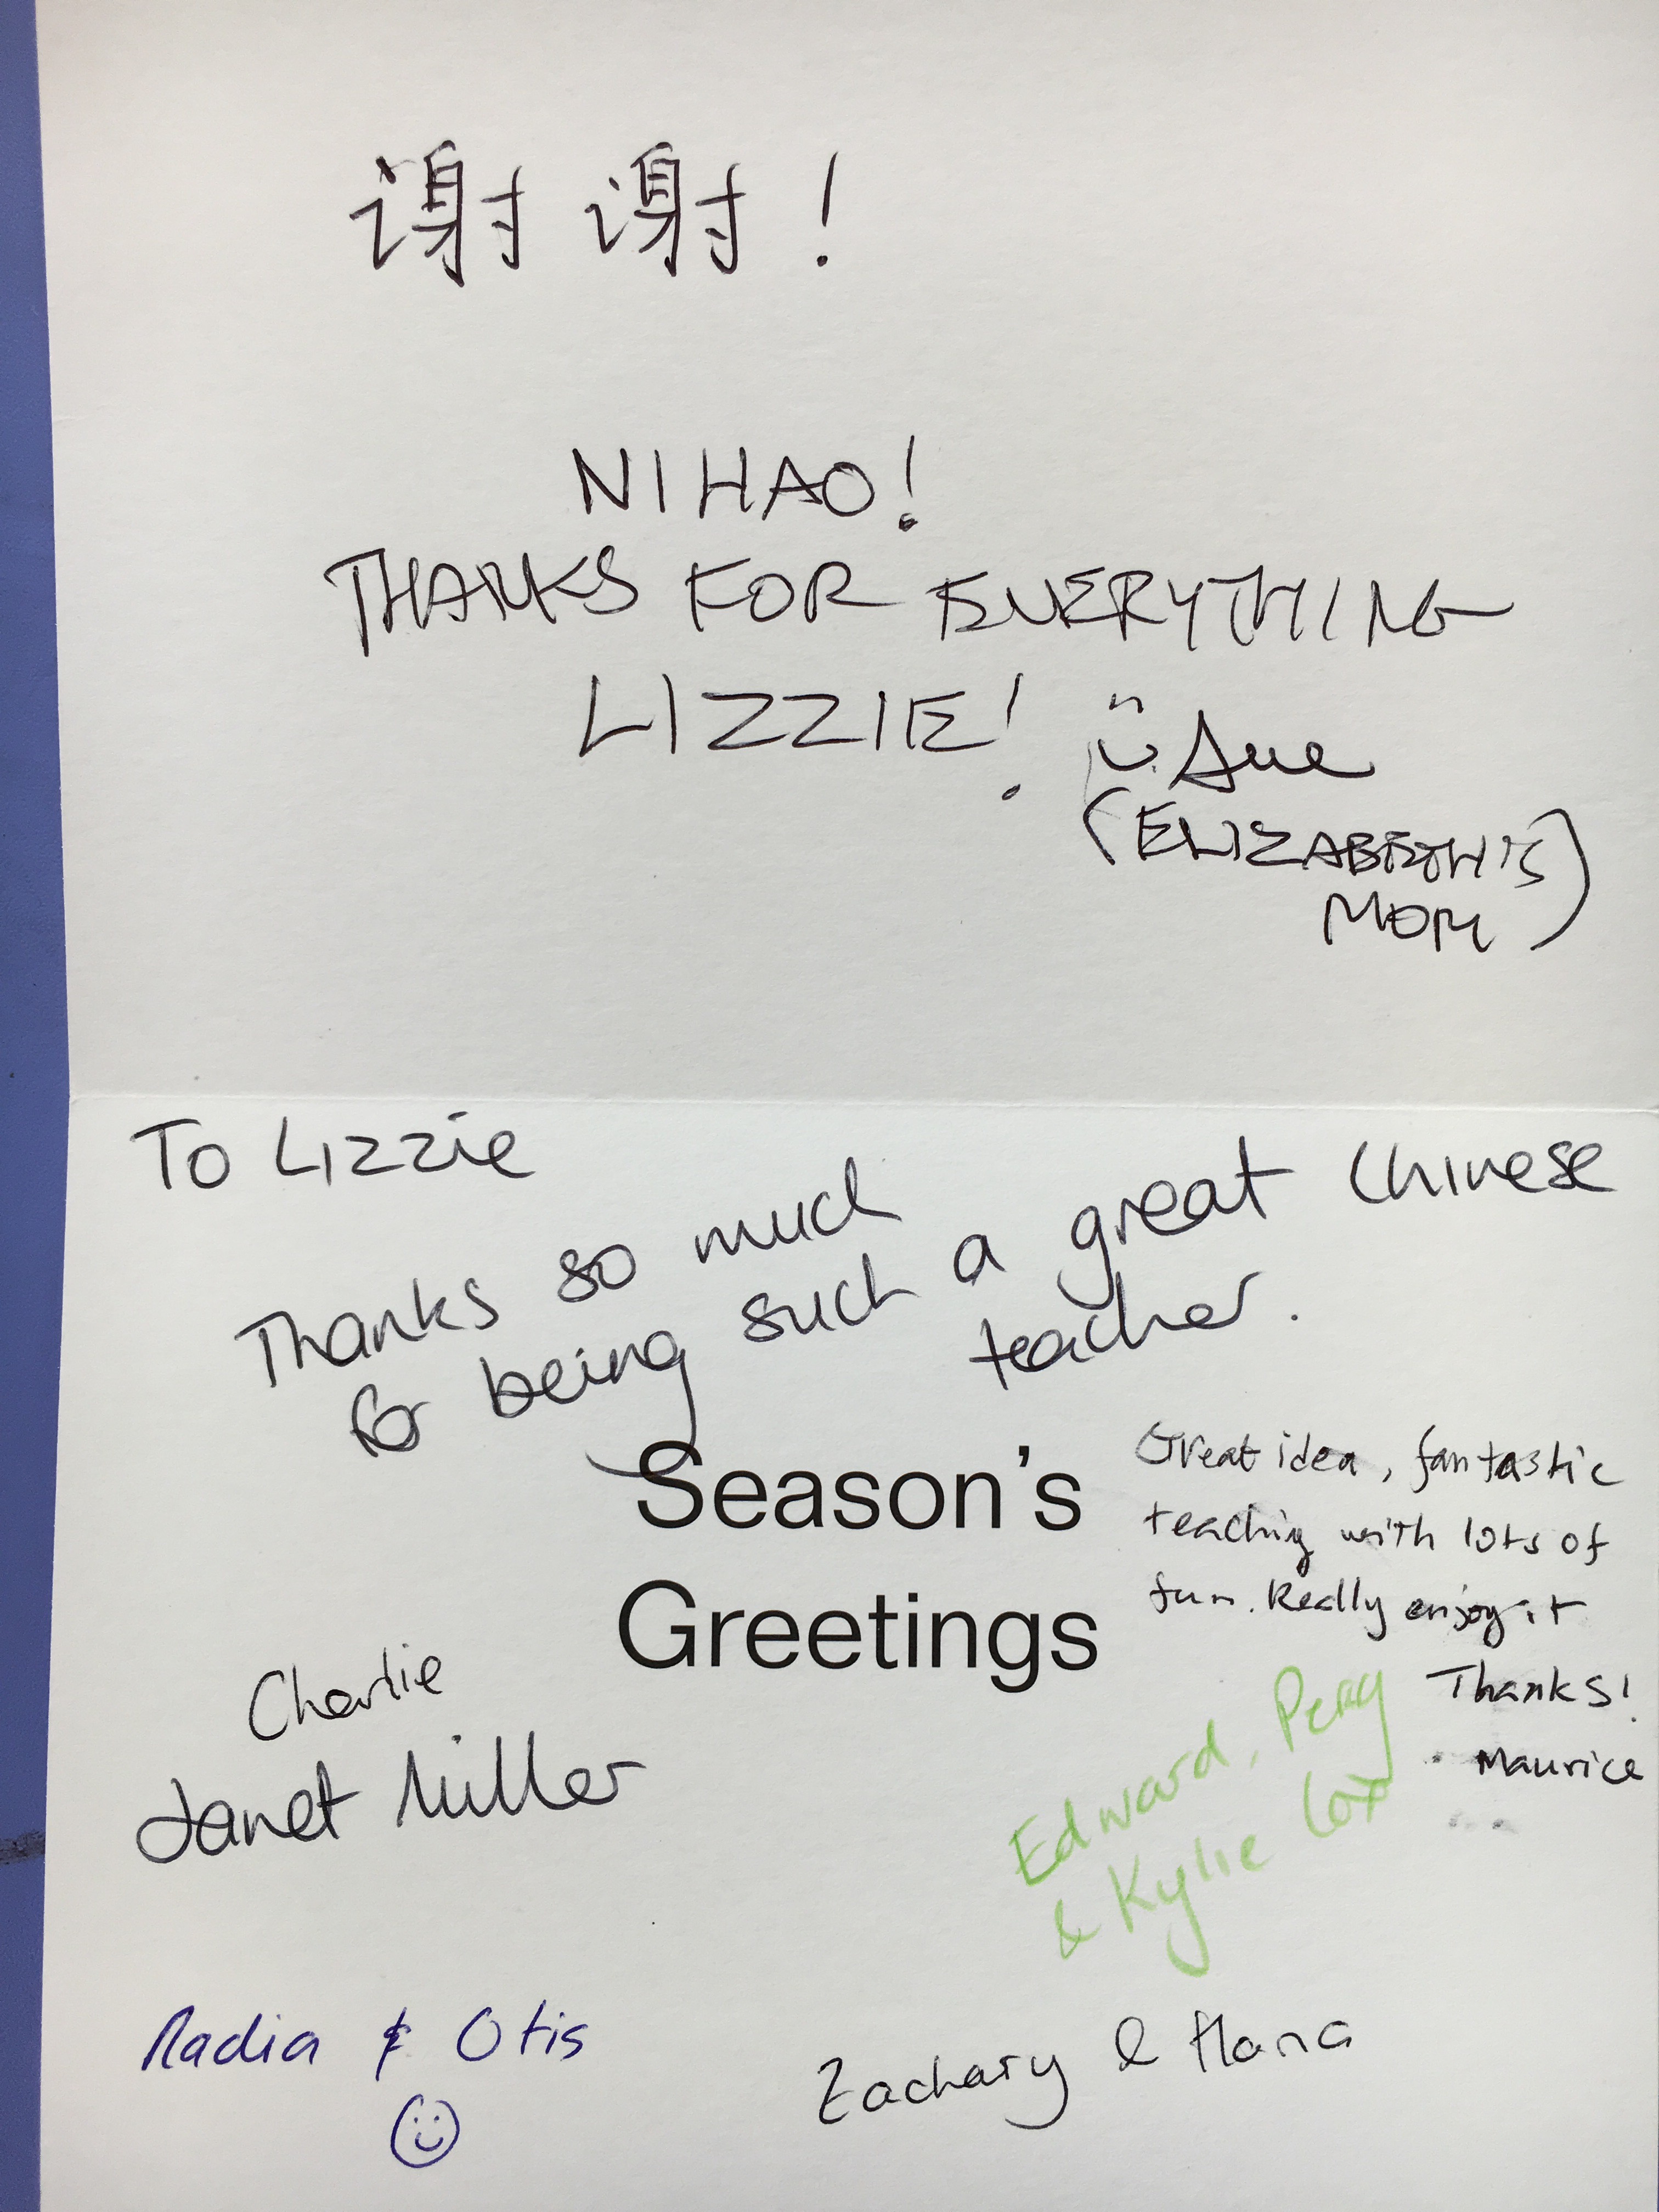 谢谢!
NIHAO!
THANKS FOR EVERYTHING
LIZZIE!
Sue
(ELIZABETH'S
MOM)
To Lizzie
Thanks so much
for being such a great Chinese
teacher.
Season's
Greetings
Great idea, fantastic
teaching with lots of
fun. Really enjoy it
Thanks!
Maurice
Charlie
Janet Miller
Edward, Perry
& Kylie Cox
Radia & Otis
Zachary & Hana